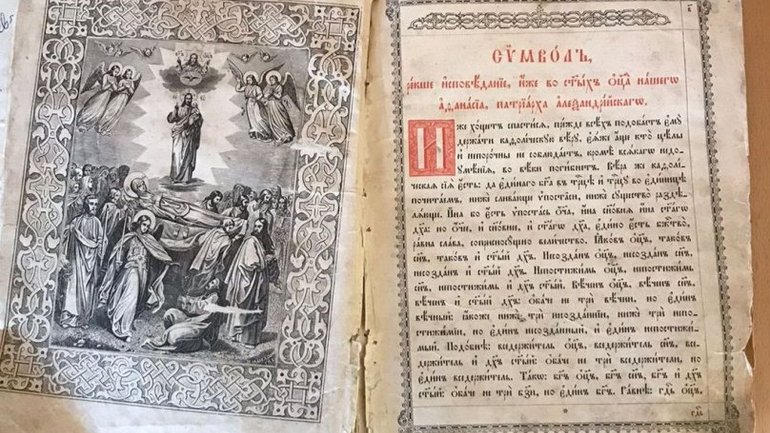 СѶ́МВОЛЪ,
ре́кше и҆сповѣ́данїе, и҆́же во ст҃ы́хъ ѻ҆ц҃а̀ на́шегѡ
А҆ѳана́сїа, патрїа́рха а҆леѯандрі́йскагѡ.
И҆́же хо́щетъ спасти́сѧ, пре́жде всѣ́хъ подоба́етъ є҆мꙋ̀
держа́ти каѳоли́ческꙋю вѣ́рꙋ, є҆ѧ́же а҆́ще кто̀ цѣ́лы
и҆ непоро́чны не соблюда́етъ, кро́мѣ всѧ́кагѡ недо-
ꙋмѣ́нїѧ, во вѣ́ки поги́бнетъ. Вѣ́ра же каѳолі-
ческаѧ сїѧ̀ є҆́сть: да є҆ди́наго бг҃а въ трⷪ҇цѣ и҆ трⷪ҇цꙋ во є҆ди́ницѣ
почита́емъ, нижѐ слива́юще ѵ҆поста́си, нижѐ сꙋщество̀ раздѣ-
лѧ́юще. И҆́на бо є҆́сть ѵ҆поста́сь ѻ҆́ч҃а, и҆́на сн҃о́внѧ, и҆́на ст҃а́гѡ
дх҃а: но ѻ҆́ч҃ее, и҆ сн҃о́внее, и҆ ст҃а́гѡ дх҃а, є҆ди́но є҆́сть бж҃ество̀,
ра́вна сла́ва, соприсносꙋ́щно вели́чество. Ꙗ҆ко́въ ѻ҆ц҃ъ, тако́въ
сн҃ъ, тако́въ и҆ ст҃ы́й дх҃ъ. Несо́зданъ ѻ҆ц҃ъ, несо́зданъ сн҃ъ,
несо́зданъ и҆ ст҃ы́й дх҃ъ. Непостижи́мь ѻ҆ц҃ъ, непостижи́мь
сн҃ъ, непостижи́мь и҆ ст҃ы́й дх҃ъ. Вѣ́ченъ ѻ҆ц҃ъ, вѣ́ченъ сн҃ъ,
вѣ́ченъ и҆ ст҃ы́й дх҃ъ: ѻ҆ба́че не трѝ вѣ́чни, но є҆ди́нъ
вѣ́чный: ꙗ҆́коже нижѐ трѝ несозда́ннїи, нижѐ трѝ непо-
стижи́мїи, но є҆ди́нъ несозда́нный, и҆ є҆ди́нъ непостижи́-
мый. Подо́бнѣ: вседержи́тель ѻ҆ц҃ъ, вседержи́тель сн҃ъ, все-
держи́тель и҆ дх҃ъ ст҃ы́й: ѻ҆ба́че не трѝ вседержи́тели, но
є҆ди́нъ вседержи́тель. Та́кѡ: бг҃ъ ѻ҆ц҃ъ, бг҃ъ сн҃ъ, бг҃ъ и҆ дх҃ъ
ст҃ы́й: ѻ҆ба́че не трѝ бѕ҃и, но є҆ди́нъ бг҃ъ. Ра́внѣ: гдⷭ҇ь ѻ҆ц҃ъ,
гдⷭ҇ь